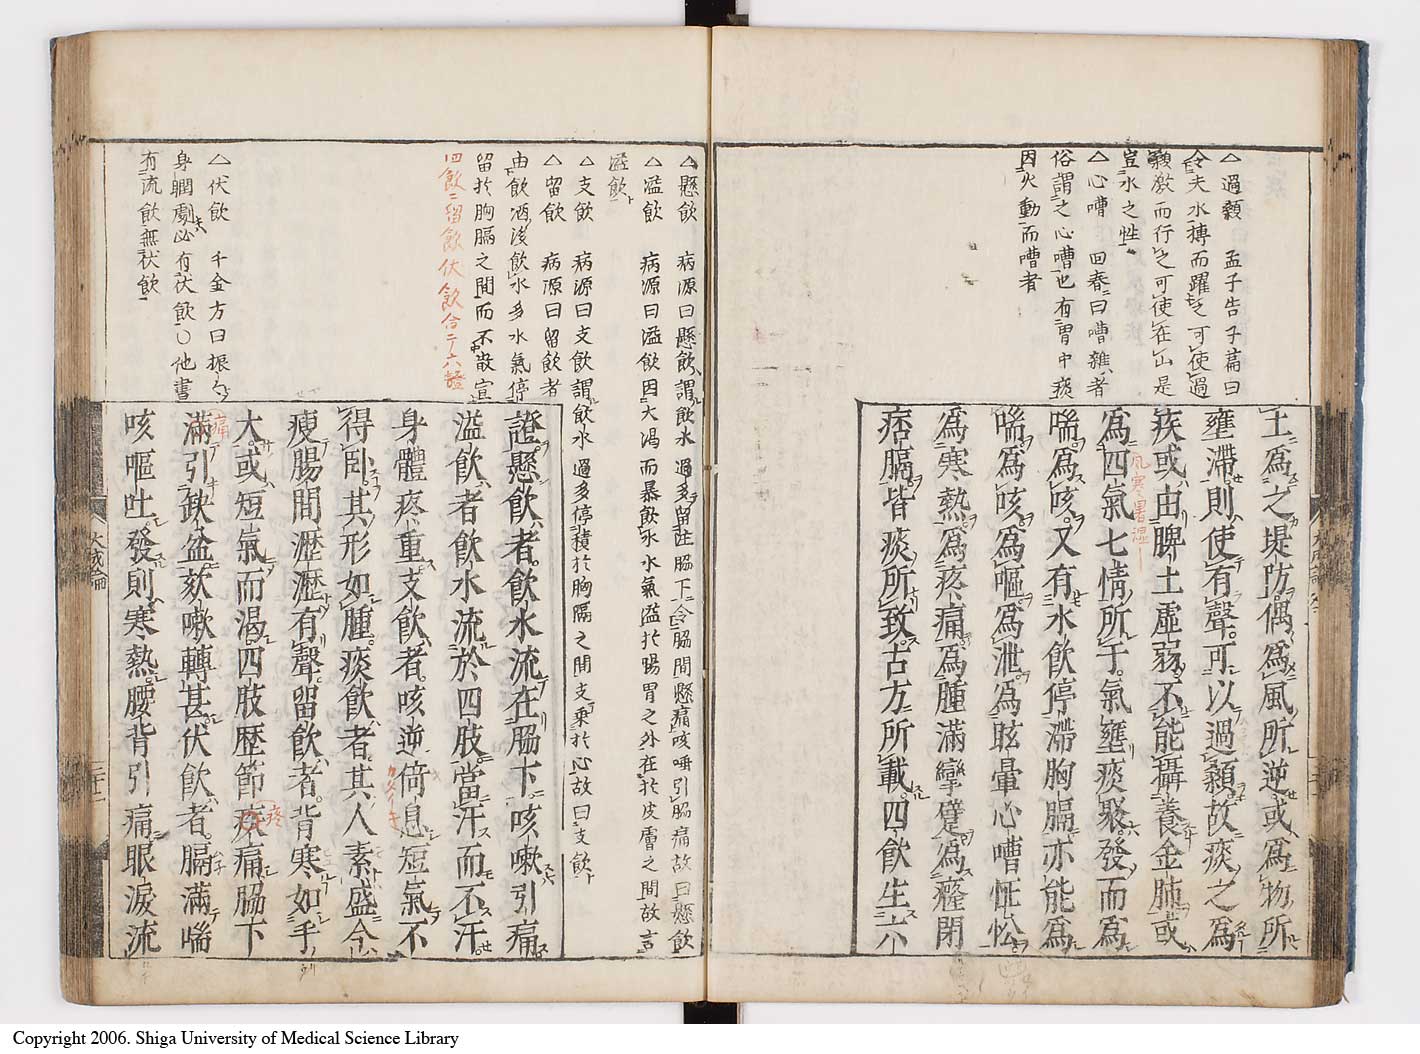 △過顙　孟子告子篇曰
今夫水搏而躍之可使過
顙激而行之可使在山是
豈水之性
△心嘈　回春曰嘈雜者
俗謂之心嘈也有胃中痰
因火動而嘈者
土爲之堤防偶爲風所逆或爲物所
壅滯則使有聲可以過顙故痰之爲
疾或由脾土虛弱不能攝養金肺或
爲四氣七情所干氣壅痰聚發而爲
風寒暑湿
喘爲咳又有水飲停滯胸膈亦能爲
喘爲咳爲嘔爲泄爲眩暈心嘈怔忪
爲寒熱爲疼痛爲腫滿攣躄爲癃閉
痞膈皆痰所致古方所載四飲生六
△懸飲　病源曰懸飲謂飲水過多留注脇下令脇間懸痛咳唾引脇痛故曰懸飲
△溢飲　病源曰溢飲因大渇而暴飲水水氣溢於腸胃之外在於皮膚之間故言
溢飲
△支飲　病源曰支飲謂飲水過多停積於胸膈之間支乗於心故曰支飲
△留飲　病源曰留飲者
由飲酒後飲水多水氣停
留於胸膈之間而不散宣
四飲ニ留飲伏飲合テ六證
△伏飲　千金方曰振々
身瞤劇必有伏飲〇他書
有流飲無伏飲
證懸飲者飲水流在脇下咳嗽引痛
溢飲者飲水流於四肢當汗而不汗
身體疼重支飲者咳逆倚息短氣不
得臥其形如腫痰飲者其人素盛今
瘦腸間瀝瀝有聲留飲者背寒如手
大或短氣而渴四肢歷節疼痛脇下
疼
滿引缺盆欬嗽轉甚伏飲者膈滿喘
痛
咳嘔吐發則寒熱腰背引痛眼淚流
大成論
二十二
Copyright 2006. Shiga University of Medical Science Library